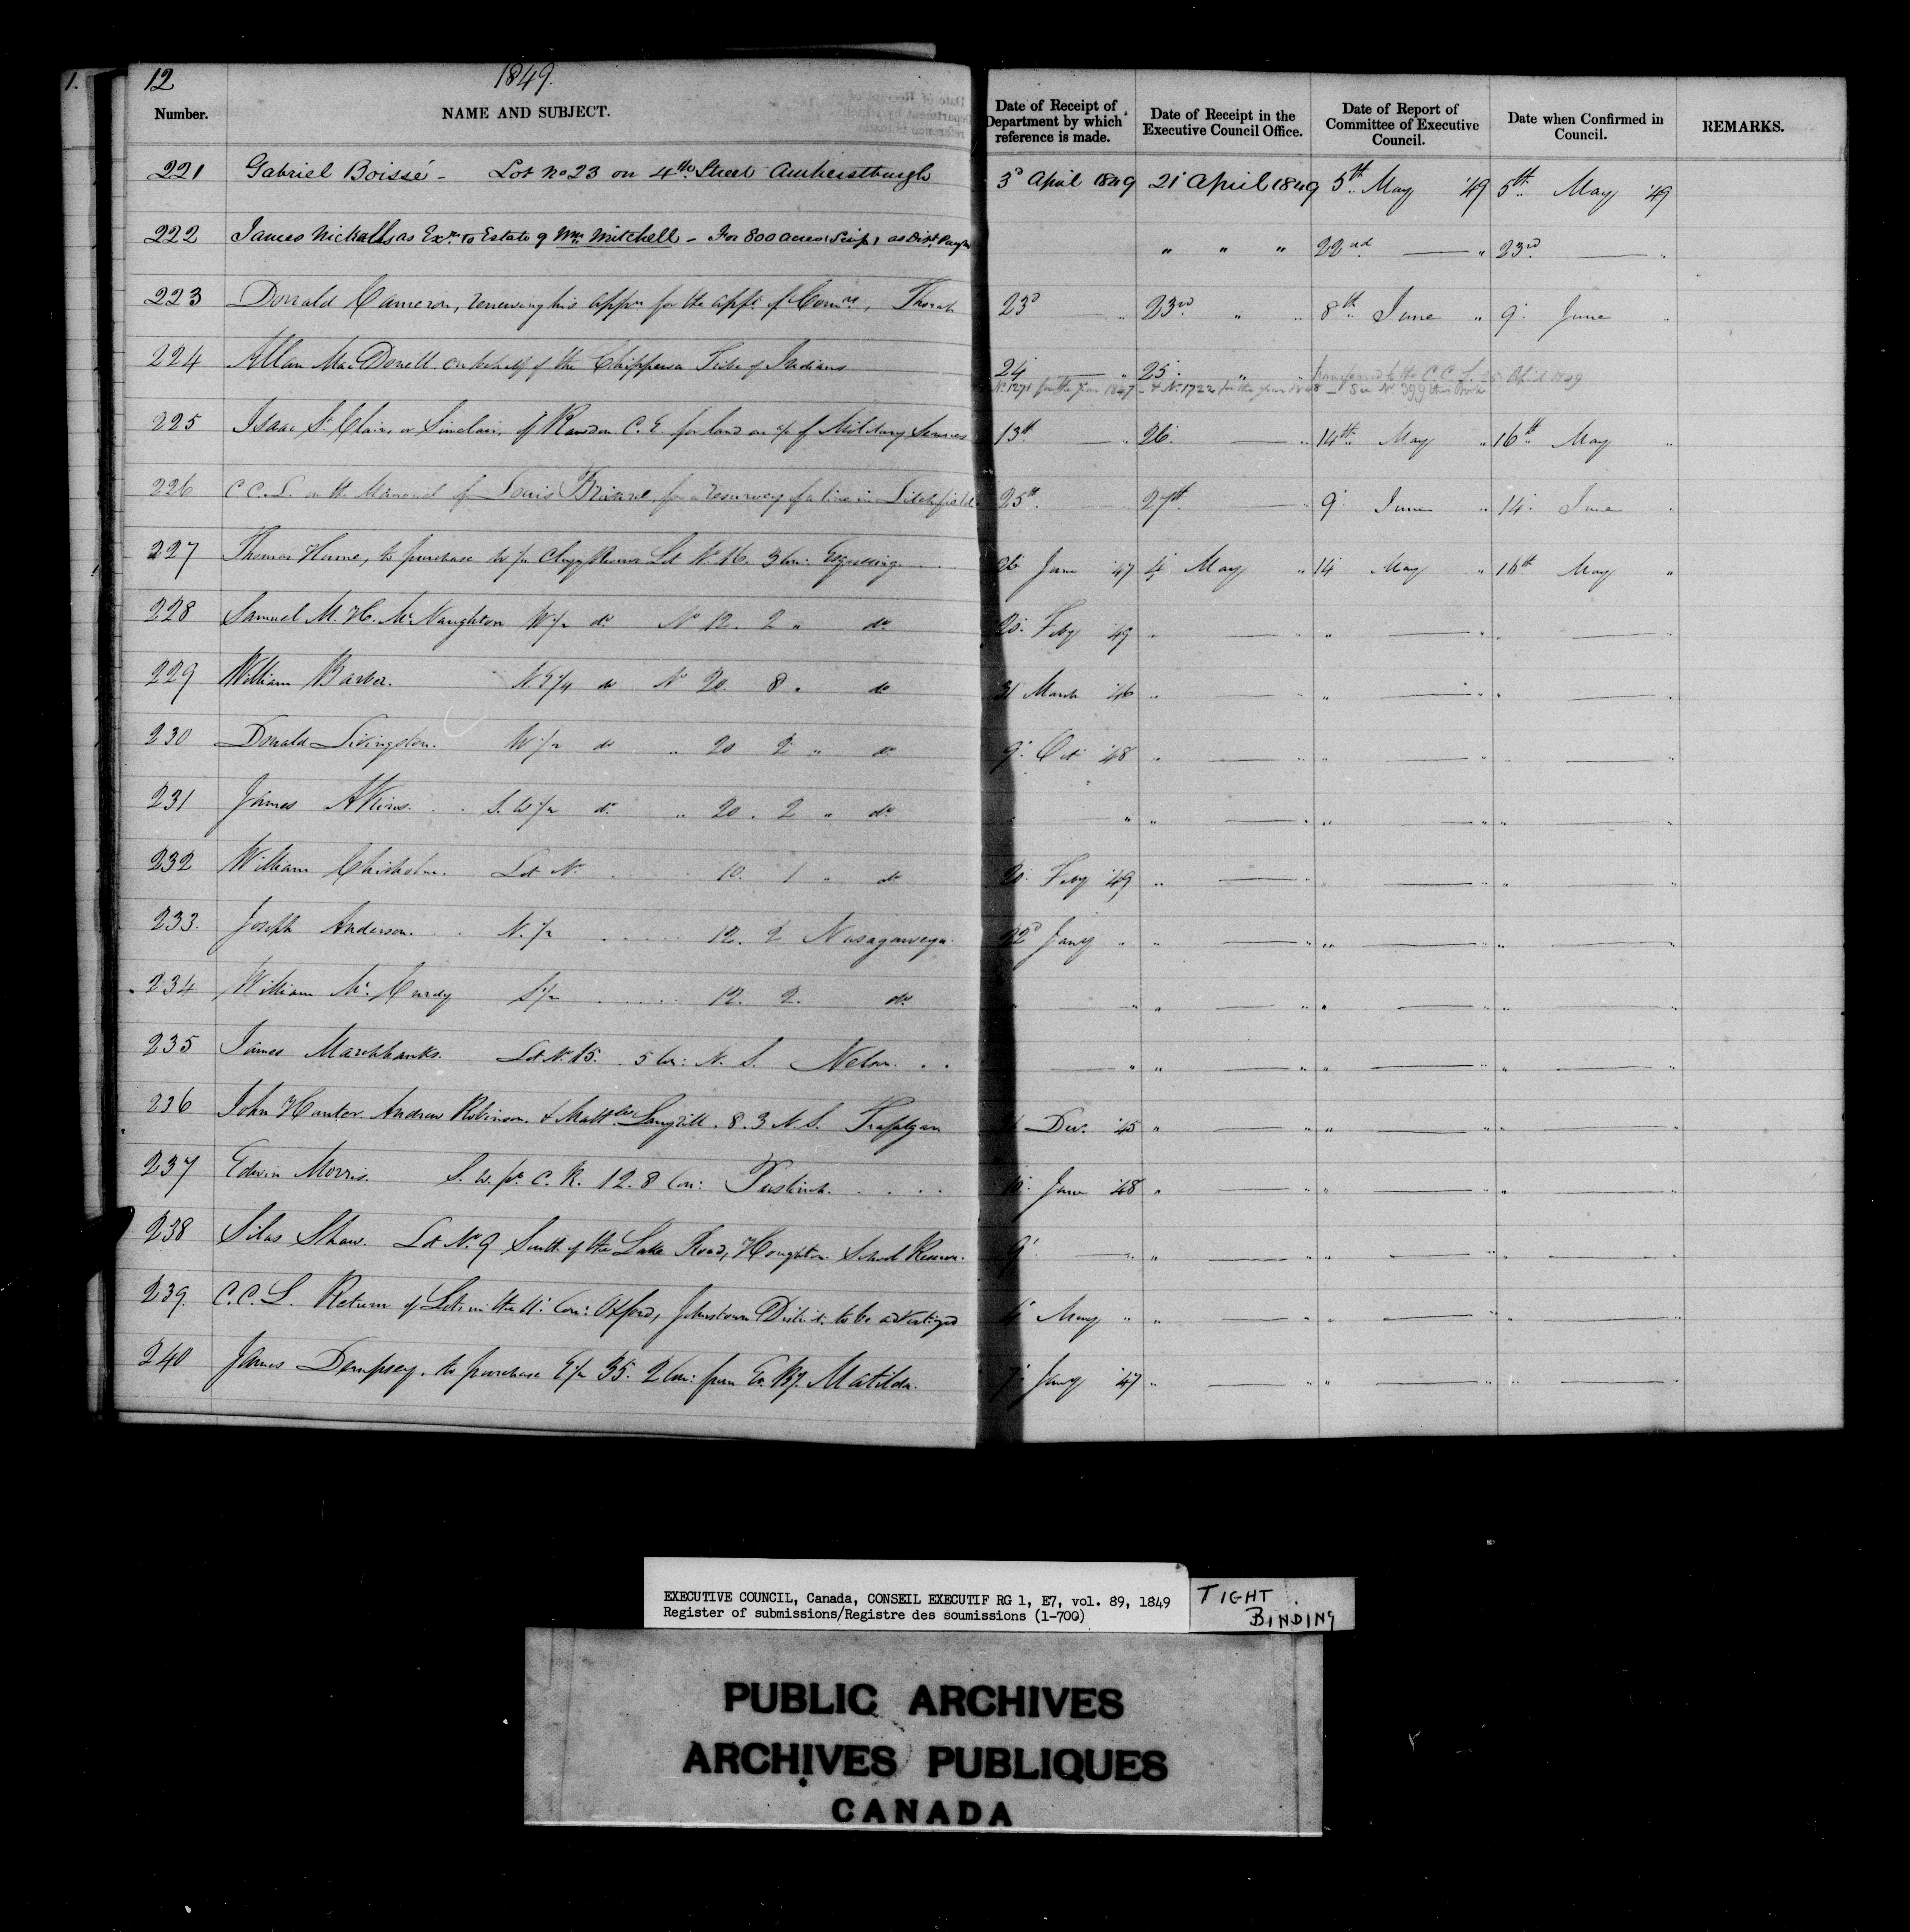 12 1849.
Number. NAME AND SUBJECT. Date of Receipt of Department by which reference is made. Date of Receipt in the Executive Council Office. Date of Report of Committee of Executive Council. Date when Confirmed in Council. REMARKS.
221 Gabriel Boissé - Lot No 23 on 4th Street Amherstburgh 3d April 1849 21 April 1849 5th May 49 5th May 49
222 James Nicholls as Exr. to Estate of Wm. Mitchell - For 800 acres Scrip, as Dist. " " " 22nd — " 23rd — "
223 Donald Cameron, renewing his appn. for the appt. of Comrs, Thorah 23d — " 23rd " " 8th June " 9 June "
224 Allan MacDonell on behalf of the Chippewa Tribe of Indians 24 — " 25 " " Transferred to the C.C.L. 25 April 1849
No 1271 for the year 1847 - & No 1722 for the year 1848 - See No 399 this Book
225 Isaac St. Clair, or Sinclair, of Rawdon C.E. for land on a/c of Military Services 13th — " 26 — " 14th May " 16th May "
226 C.C.L. on the Memorial of Louis for a resurvey of a line in Litchfield 25th — 27th — " 9 June " 14 June "
227 Thomas Hume, to purchase W 1/2 Clergy Reserve Lot No 16. 3 Con: Esquesing 26 June 47 4 May " 14 May " 16th May "
228 Samuel M. H. McNaughton W 1/2 do No 12. 2 " do 20 Feby 49 " — " " — " " — "
229 William Barber. N.E 1/4 do No 20. 8 " do 31 March 46 " — " " — " " — "
230 Donald Livingston. W 1/2 do " 20 2 " do 9 Oct 48 " — " " — " " — "
231 James Atkins. S.W 1/2 do " 20. 2 " do " — " " — " " — " " — "
232 William Chisholm. Lot No 10. 1 " do 20 Feby 49 " — " " — " " — "
233. Joseph Anderson. N. 1/2 12. 2 Nasagaweya. 22d Jany " " — " " — " " — "
234 William McCurdy S 1/2 12. 2. do " — " " — " " — " " — "
235 James Marchbanks. Lot No 15. 5 Con: N. S. Nelson. — " " — " " — " " — "
236 John Hunter. Andrew Robinson. & Matt. 8. 3 N. S. Trafalgar Dec. 45 " — " " — " " — "
237 Edwin Morris. S. W. pt. C. R. 12. 8 Con: Puslinch. June 48 " — " " — " " — "
238 Silas Shaw. Lot No 9 South of the Lake Road, Houghton School Reserve. 9 — " " — " " — " " — "
239. C.C.L. Return of Lots in the 11 Con: Oxford, Johnstown District to be advertized May " " — " " — " " — "
240 James Dempsey, to purchase E 1/2 35. 2 Con: Matilda. 7 Jany 47 " — " " — " " — "
EXECUTIVE COUNCIL, Canada, CONSEIL EXECUTIF RG 1, E7, vol. 89, 1849
Register of submissions/Registre des soumissions (1-700)
TIGHT BINDING
PUBLIC ARCHIVES
ARCHIVES PUBLIQUES
CANADA